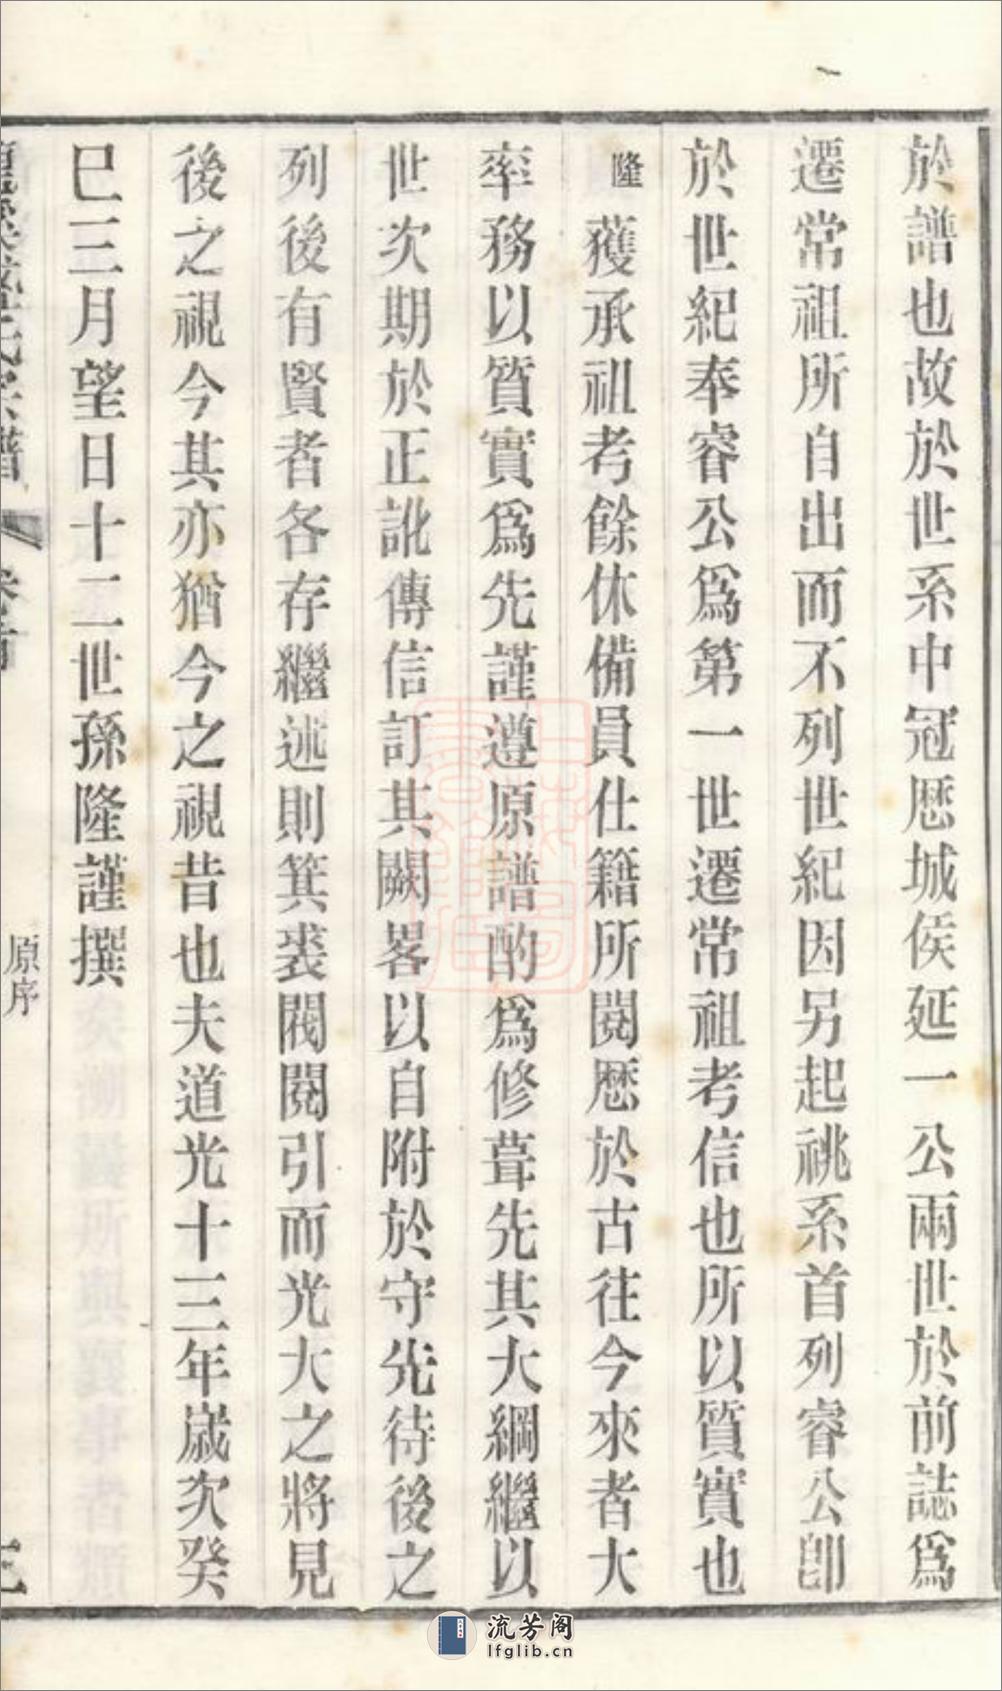 於譜也故於世系中冠厯城侯延一公兩世於前誌爲
遷常祖所自出而不列世紀因另起祧系首列睿公卽
於世紀奉睿公爲第一世遷常祖考信也所以質實也
隆獲承祖考餘休備員仕籍所閱厯於古往今來者大
率務以質實爲先謹遵原譜酌爲修葺先其大綱繼以
世次期於正訛傳信訂其闕畧以自附於守先待後之
列後有賢者各存繼述則箕裘閥閱引而光大之將見
後之視今其亦猶今之視昔也夫道光十三年嵗次癸
巳三月望日十二世孫隆謹撰
氏宗譜
卷首
原序
流芳阁
lfglib.cn